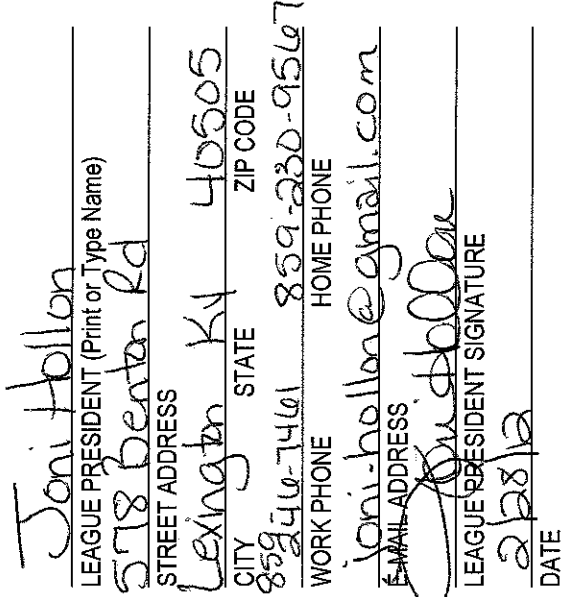 Joni Hollon
LEAGUE PRESIDENT (Print or Type Name)
578 Benton Rd
STREET ADDRESS
Lexington Ky 40505
CITY STATE ZIP CODE
859 246-7461 859-230-9567
WORK PHONE HOME PHONE
joni-hollon@gmail.com
E-MAIL ADDRESS
Joni Hollon
LEAGUE PRESIDENT SIGNATURE
2/28/12
DATE